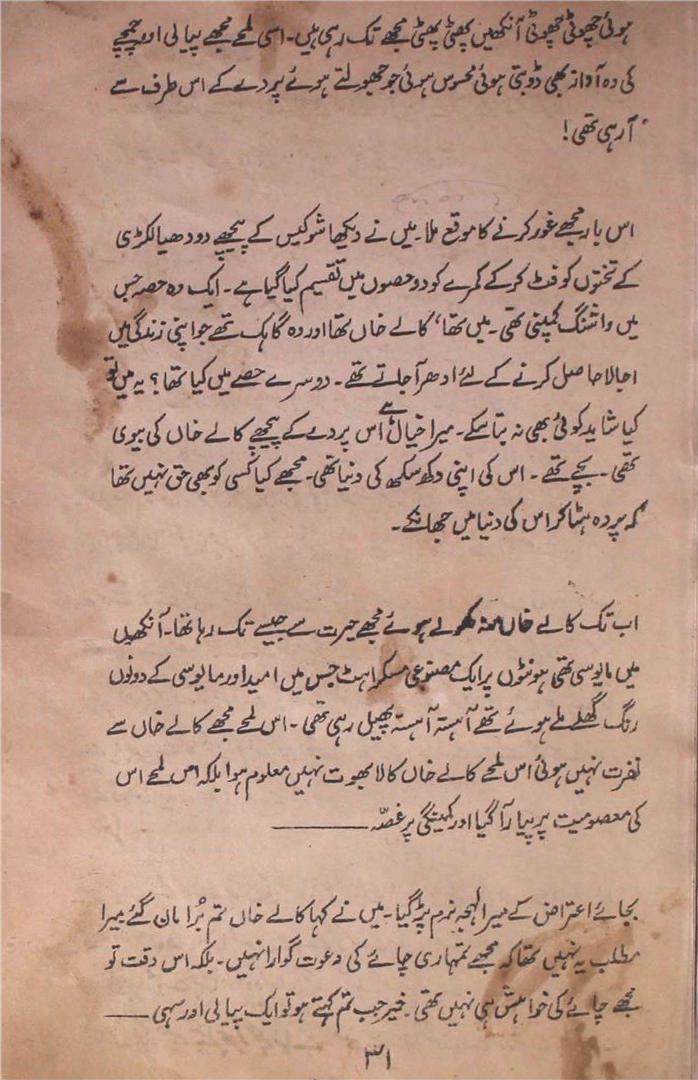 ہوئی چھوٹی چھوٹی آنکھیں پھٹی پھٹی مجھے تک رہی ہیں۔ اسی لمحے مجھے پیالی اور چمچے
کی وہ آواز بھی ڈوبتی ہوئی محسوس ہوئی جو جھولتے ہوئے پردے کے اس طرف سے
آ رہی تھی!
اس بار مجھے غور کرنے کا موقع ملا۔ میں نے دیکھا شوکیس کے پیچھے دودھیا لکڑی
کے تختوں کو فٹ کرکے کمرے کو دو حصوں میں تقسیم کیا گیا ہے۔ ایک وہ حصہ جس
میں واشنگ کمپنی تھی۔ میں تھا، کالے خاں تھا اور وہ گاہک تھے جو اپنی زندگی میں
اجالا حاصل کرنے کے لئے ادھر آ جاتے تھے۔ دوسرے حصے میں کیا تھا؟ یہ میں تو
کیا شاید کوئی بھی نہ بتا سکے۔ میرا خیال ہے اس پردے کے پیچھے کالے خاں کی بیوی
تھی۔ بچے تھے۔ اس کی اپنی دکھ سکھ کی دنیا تھی۔ مجھے کیا کسی کو بھی حق نہیں تھا
کہ پردہ ہٹا کر اس کی دنیا میں جھانکے۔
اب تک کالے خاں منہ کھولے ہوئے مجھے حیرت سے جیسے تک رہا تھا۔ آنکھیں
میں مایوسی تھی ہونٹوں پر ایک مصنوعی مسکراہٹ جس میں امید اور مایوسی کے دونوں
رنگ گھلے ملے ہوئے تھے آہستہ آہستہ پھیل رہی تھی۔ اس لمحے مجھے کالے خاں سے
نفرت نہیں ہوئی اس لمحے کالے خاں کالا بھوت نہیں معلوم ہوا بلکہ اس لمحے اس
کی معصومیت پر پیار آ گیا اور کمینگی پر غصّہ ———
بجائے اعتراض کے میرا لہجہ نرم پڑ گیا۔ میں نے کہا کالے خاں تم بُرا مان گئے میرا
مطلب یہ نہیں تھا کہ مجھے تمہاری چائے کی دعوت گوارا نہیں۔ بلکہ اس وقت تو
مجھے چائے کی خواہش ہی نہیں تھی۔ خیر جب تم کہتے ہو تو ایک پیالی اور سہی ———
۳۱